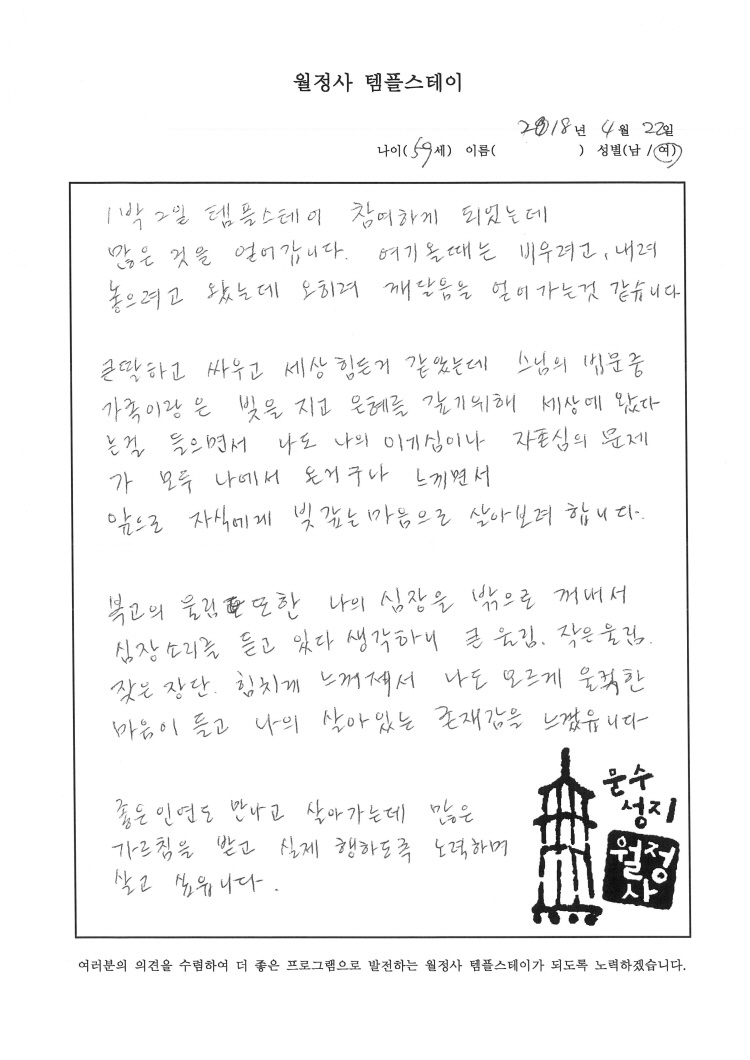 월정사 템플스테이
2018년 4월 22일
나이(59세) 이름( ) 성별(남 / 여)
1박 2일 템플스테이 참여하게 되었는데
많은 것을 얻어갑니다. 여기올때는 비우려고, 내려
놓으려고 왔는데 오히려 깨달음을 얻어 가는것 같습니다
큰딸하고 싸우고 세상 힘든거 같았는데 스님의 법문중
가족이랑은 빚을 지고 은혜를 갚기위해 세상에 왔다
는걸 들으면서 나도 나의 이기심이나 자존심의 문제
가 모두 나에서 온거구나 느끼면서
앞으로 자식에게 빚 갚는 마음으로 살아보려 합니다.
북고의 울림 또한 나의 심장을 밖으로 꺼내서
심장소리를 듣고 있다 생각하니 큰 울림, 작은울림.
잦은 장단. 힘차게 느껴져서 나도 모르게 울컥한
마음이 들고 나의 살아있는 존재감을 느꼈읍니다
좋은인연도 만나고 살아가는데 많은
가르침을 받고 실제 행하도록 노력하며
살고 싶읍니다.
문수
성지
월정
사
여러분의 의견을 수렴하여 더 좋은 프로그램으로 발전하는 월정사 템플스테이가 되도록 노력하겠습니다.